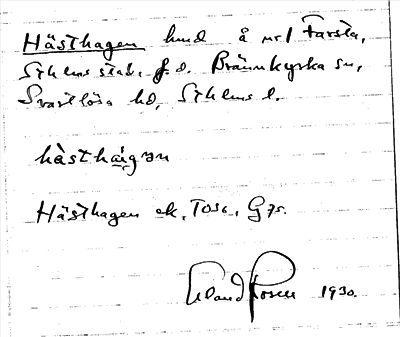 Hästhagen hmd å nr 1 Farsta,
Sthlms stad, f.d. Brännkyrka sn,
Svartlösa hd, Sthlms l.
hàsthágən
Hästhagen ek. Tosc. G 75.
Eland Rosell 1930.